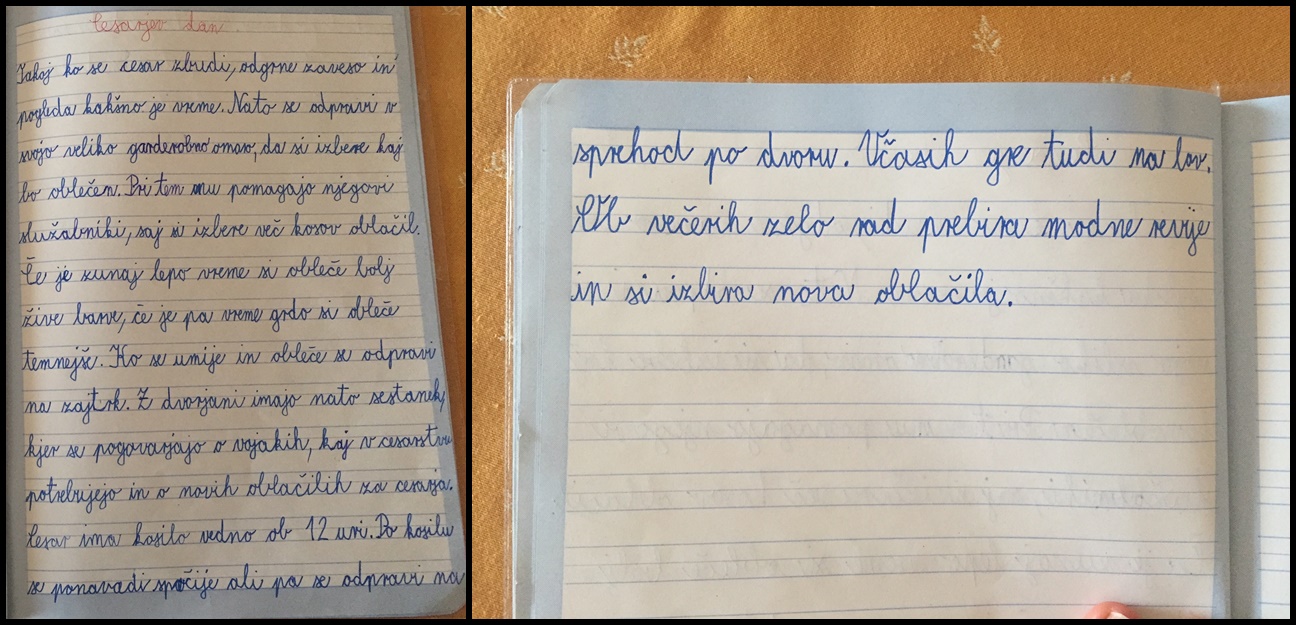 Cesarjev dan
Takoj ko se cesar zbudi, odgrne zaveso in
pogleda kakšno je vreme. Nato se odpravi v
svojo veliko garderobno omaro, da si izbere kaj
bo oblečen. Pri tem mu pomagajo njegovi
služabniki, saj si izbere več kosov oblačil.
Če je zunaj lepo vreme si obleče bolj
žive barve, če je pa vreme grdo si obleče
temnejše. Ko se umije in obleče se odpravi
na zajtrk. Z dvorjani imajo nato sestanek,
kjer se pogovarjajo o vojakih, kaj v cesarstvu
potrebujejo in o novih oblačilih za cesarja.
Cesar ima kosilo vedno ob 12 uri. Po kosilu
se ponavadi spočije ali pa se odpravi na
sprehod po dvoru. Včasih gre tudi na lov.
Ob večerih zelo rad prebira modne revije
in si izbira nova oblačila.